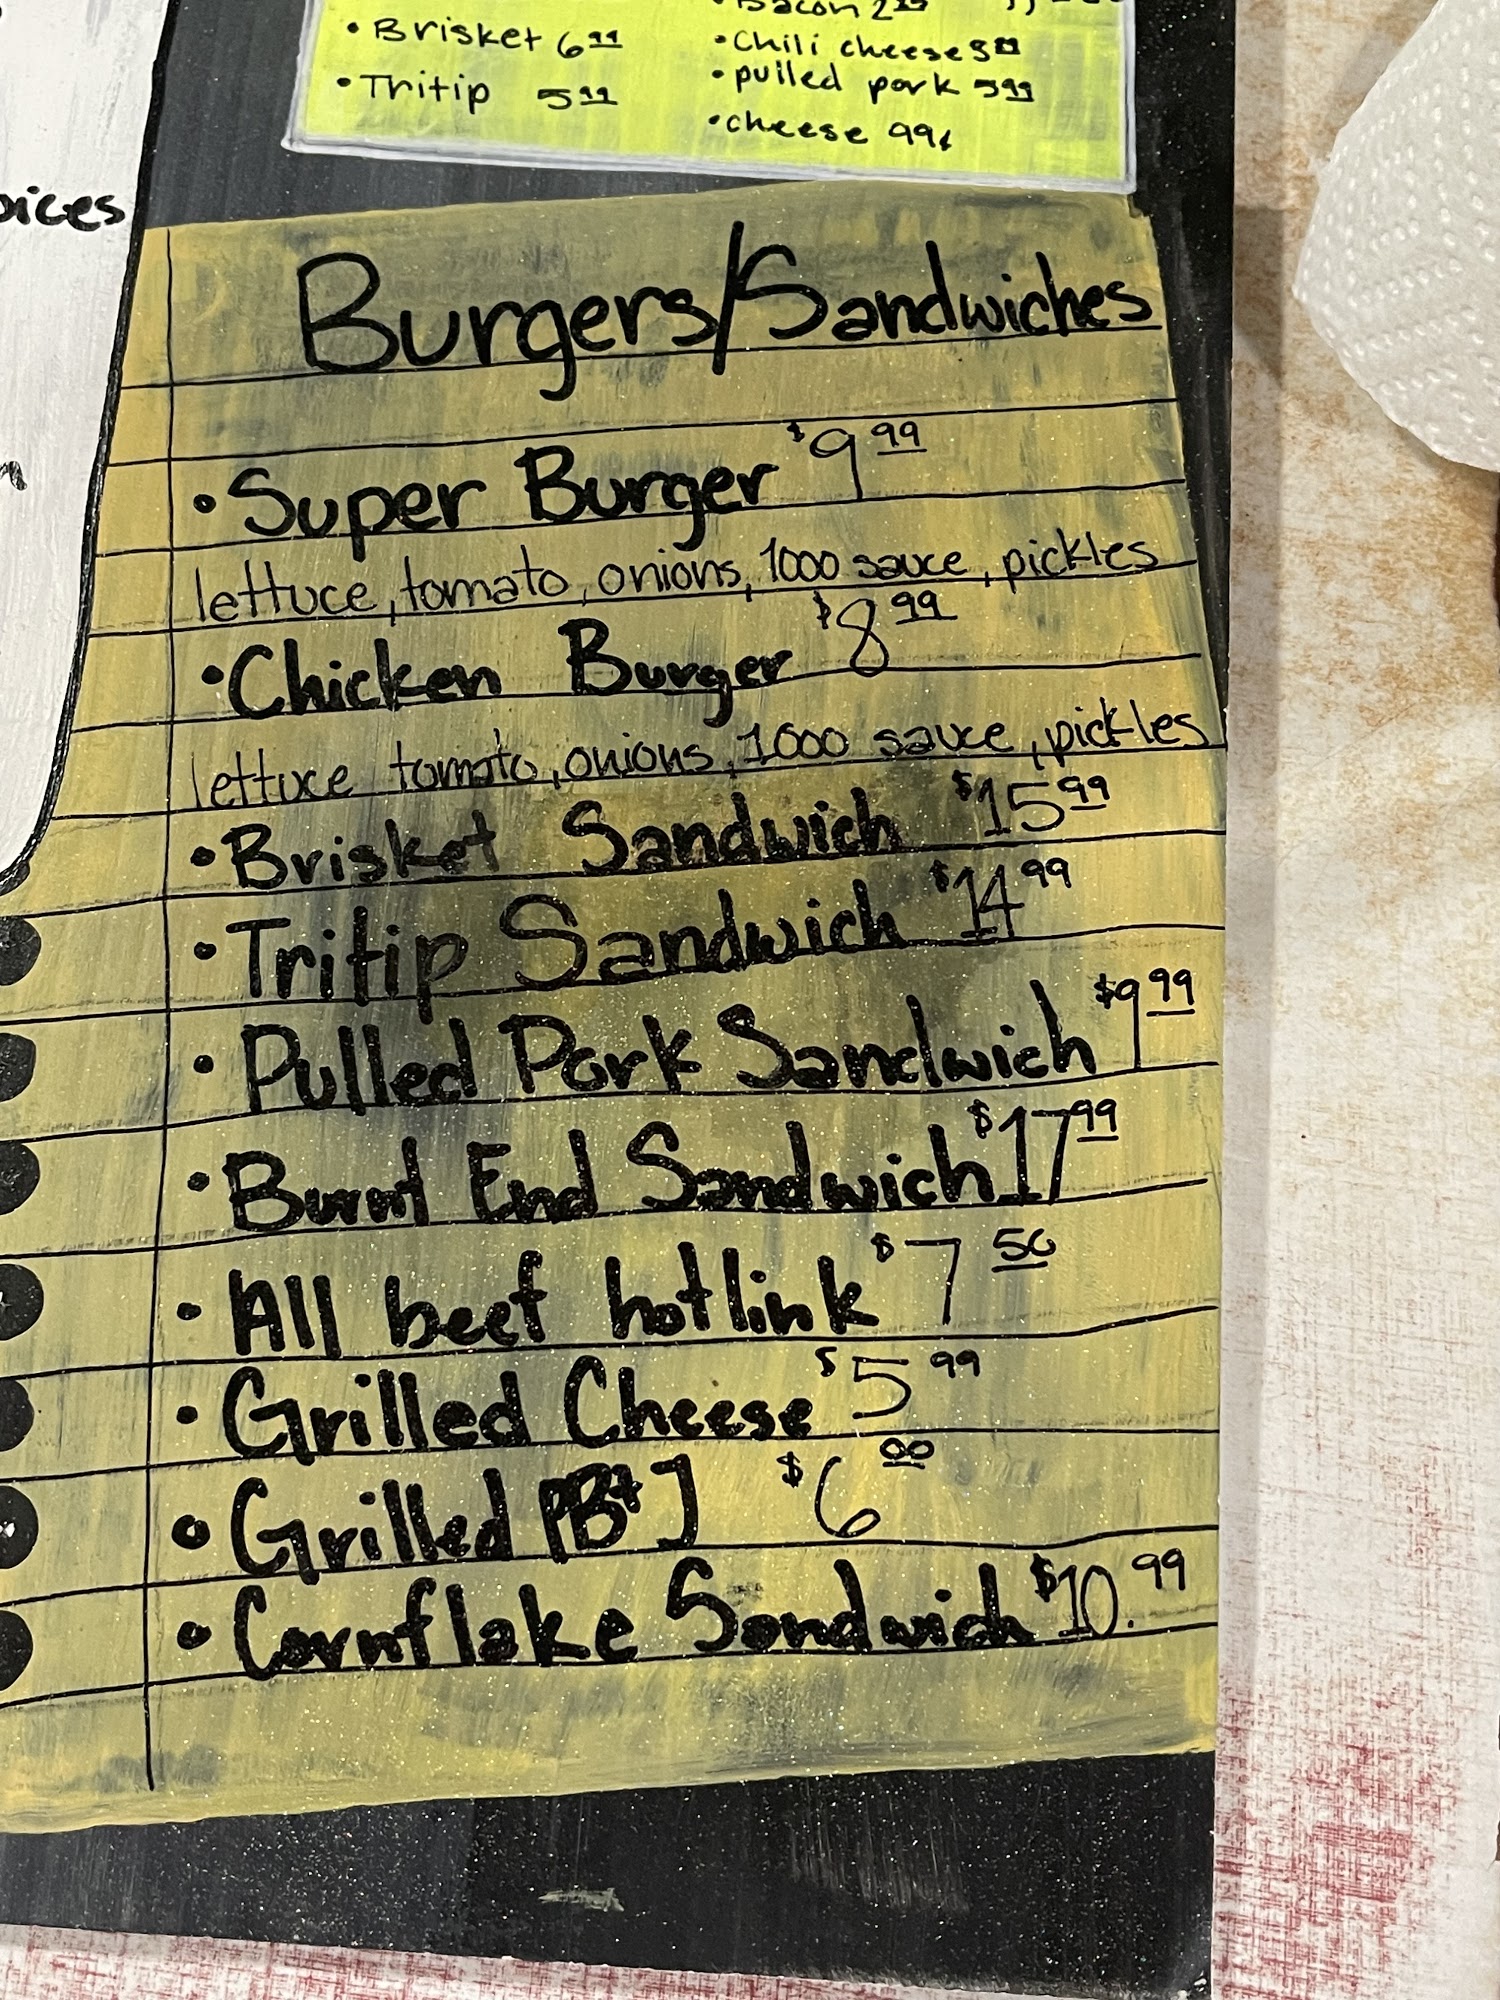 • Brisket 6.99
• Tritip 5.99
• Bacon 2
• Chili cheese
• pulled pork 5.99
• cheese 99¢
oices
Burgers/Sandwiches
• Super Burger $9.99
lettuce, tomato, onions, 1000 sauce, pickles
• Chicken Burger $8.99
lettuce tomato, onions, 1000 sauce, pickles
• Brisket Sandwich $15.99
• Tritip Sandwich $14.99
• Pulled Pork Sandwich $9.99
• Burnt End Sandwich $17.99
• All beef hotlink $7.50
• Grilled Cheese $5.99
• Grilled PB+J $6.00
• Cornflake Sandwich $10.99